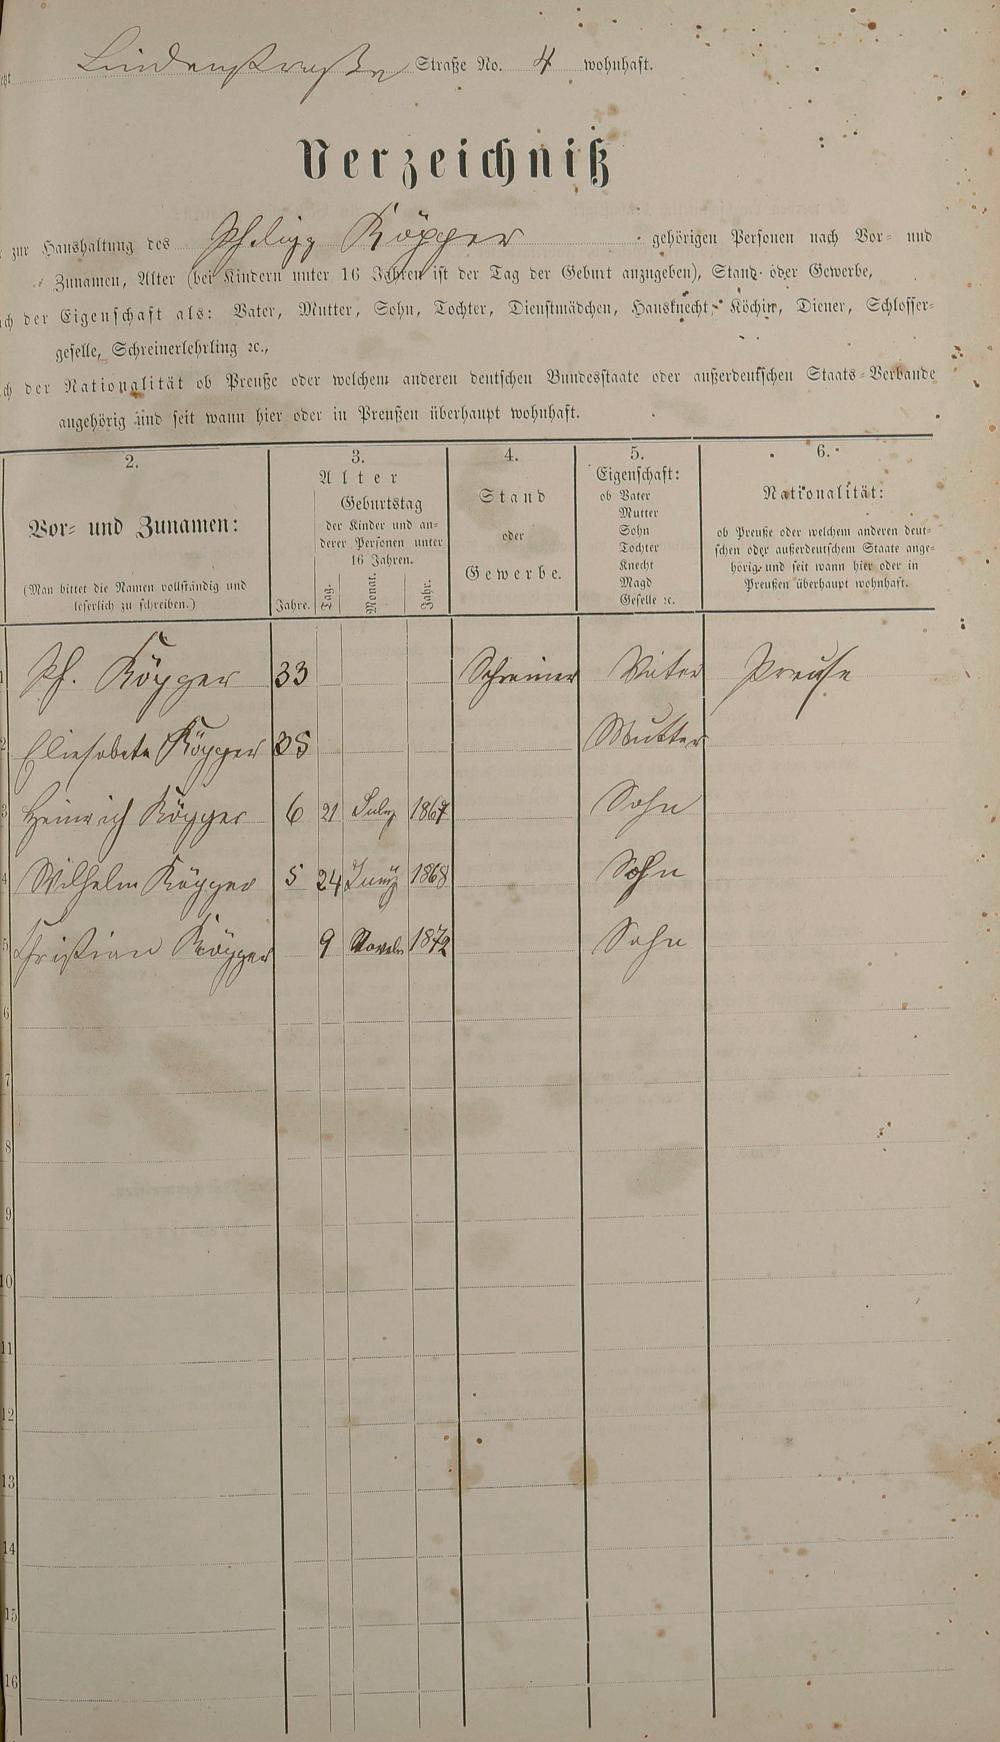 Lindenstraße Straße No. 4 wohnhaft.
Verzeichniß
zur Haushaltung des Philipp Köpper gehörigen Personen nach Vor- und
Zunamen, Alter (bei Kindern unter 16 Jahren ist der Tag der Geburt anzugeben), Stand oder Gewerbe,
der Eigenschaft als: Vater, Mutter, Sohn, Tochter, Dienstmädchen, Hausknecht, Köchin, Diener, Schlosser-
geselle, Schreinerlehrling ꝛc.,
der Nationalität ob Preuße oder welchem anderen deutschen Bundesstaate oder außerdeutschen Staats-Verbande
angehörig und seit wann hier oder in Preußen überhaupt wohnhaft.
2. 3. 4. 5. 6.
Vor- und Zunamen:
(Man bittet die Namen vollständig und
leserlich zu schreiben.)
Alter
Jahre.
Geburtstag
der Kinder und an-
derer Personen unter
16 Jahren.
Tag. Monat. Jahr.
Stand
oder
Gewerbe.
Eigenschaft:
ob Vater
Mutter
Sohn
Tochter
Knecht
Magd
Geselle ꝛc.
Nationalität:
ob Preuße oder welchem anderen deut-
schen oder außerdeutschem Staate ange-
hörig und seit wann hier oder in
Preußen überhaupt wohnhaft.
1 Ph. Köpper 33 Schreiner Vater Preuße
2 Eliesabeta Köpper 35 Mutter
3 Heinrich Köpper 6 21 July 1867 Sohn
4 Wilhelm Köpper 5 24 Juny 1868 Sohn
5 Christian Köpper 9 Novebr 1872 Sohn
6
7
8
9
10
11
12
13
14
15
16